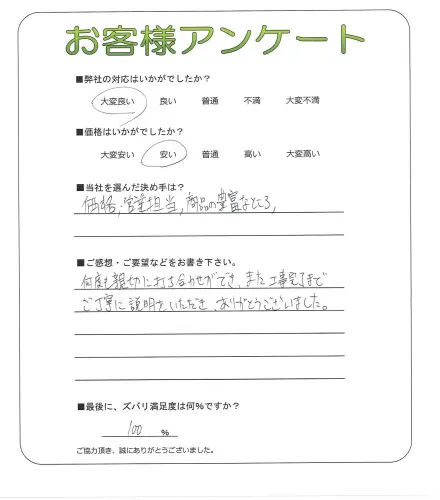 お客様アンケート
■弊社の対応はいかがでしたか？
大変良い 良い 普通 不満 大変不満
■価格はいかがでしたか？
大変安い 安い 普通 高い 大変高い
■当社を選んだ決め手は？
価格,営業担当,商品の豊富なところ,
■ご感想・ご要望などをお書き下さい。
何度も親切に打ち合わせができ、また工事完了まで
ご丁寧に説明をいただき、ありがとうございました。
■最後に、ズバリ満足度は何％ですか？
100 ％
ご協力頂き、誠にありがとうございました。